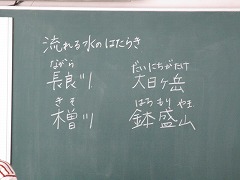 流れる水のはたらき
ながら
長良川
きそ
木曽川
だいにちがたけ
大日ヶ岳
はちもりやま
鉢盛山